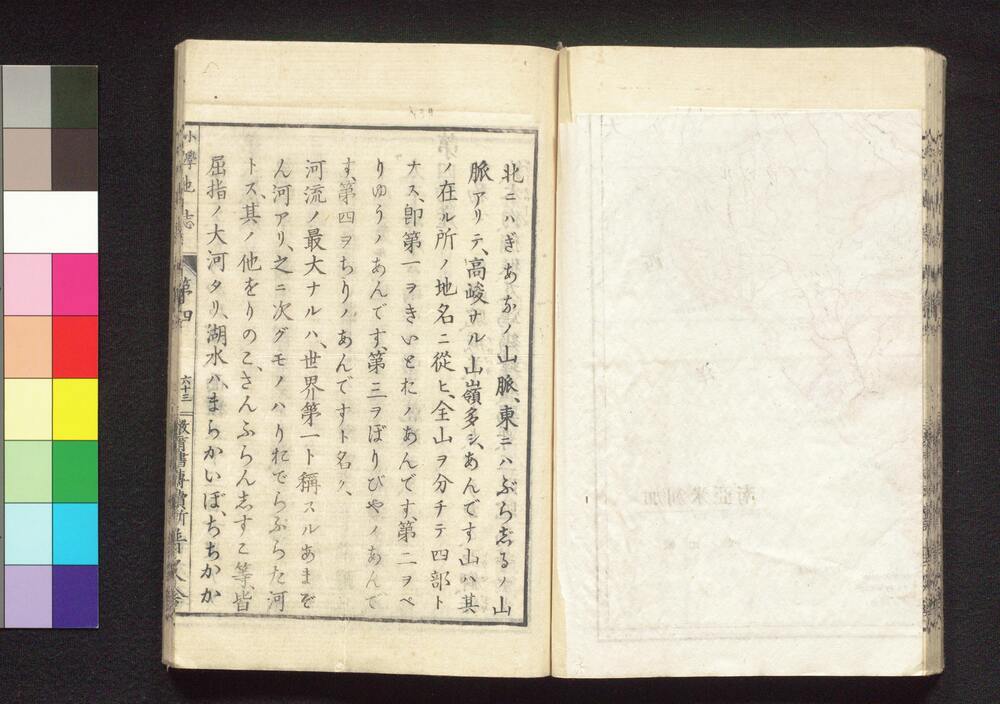 北ニハぎあなノ山脈、東ニハぶらじるノ山
脈アリテ、高峻ナル山嶺多シ、あんです山ハ其
ノ在ル所ノ地名ニ從ヒ、全山ヲ分チテ四部ト
ナス、卽第一ヲきいとたノあんです、第二ヲぺ
りゆうノあんです、第三ヲぼりびやノあんで
す、第四ヲちりノあんですト名ク、
河流ノ最大ナルハ、世界第一ト稱スルあまぞ
ん河アリ、之ニ次グモノハりおでらぷらた河
トス、其ノ他をりのこ、さんふらんしすこ等、皆
屈指ノ大河タリ、湖水ハ、まらかいぼ、ちちかか
小學地誌
第四
六十三
南亞米利加